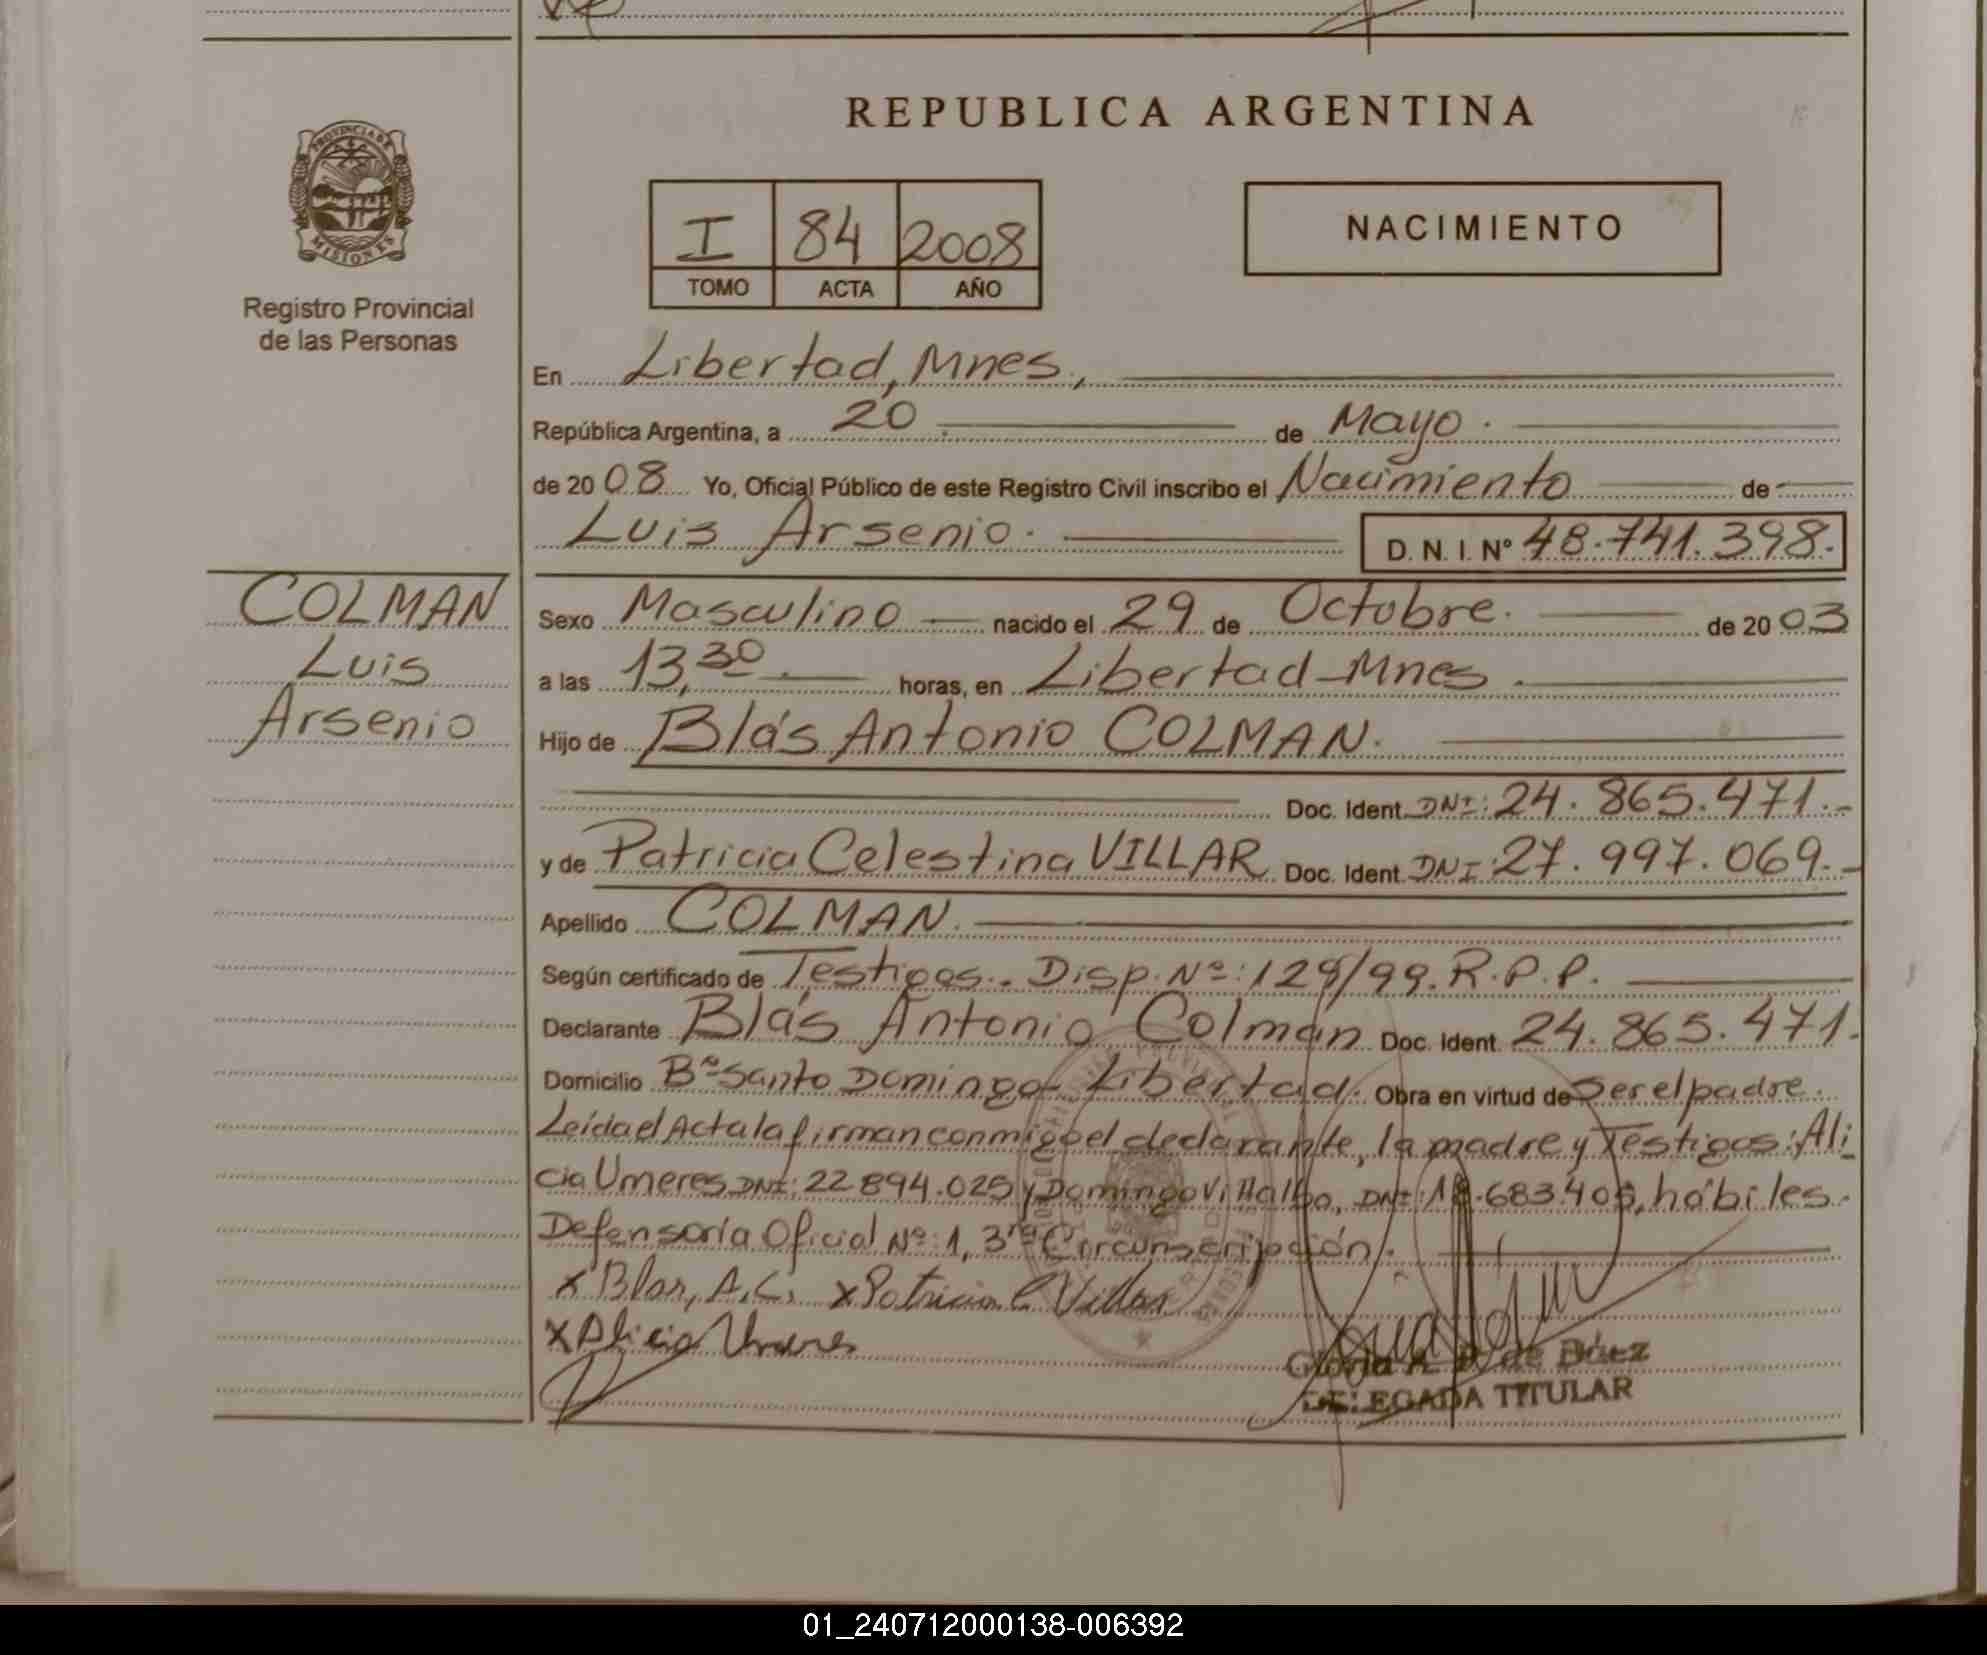 REPUBLICA ARGENTINA
PROVINCIA DE
MISIONES
Registro Provincial
de las Personas
I 84 2008
TOMO ACTA AÑO
NACIMIENTO
En Libertad, Mnes,
República Argentina, a 20 de Mayo.
de 20 08 Yo, Oficial Público de este Registro Civil inscribo el Nacimiento de
Luis Arsenio. D. N. I. Nº 48.741.398.
COLMAN
Luis
Arsenio
Sexo Masculino nacido el 29 de Octubre. de 20 03
a las 13,30 horas, en Libertad-Mnes.
Hijo de Blás Antonio COLMAN.
Doc. Ident. DNI: 24.865.471.-
y de Patricia Celestina VILLAR Doc. Ident. DNI: 27.997.069.-
Apellido COLMAN.
Según certificado de Testigos.. Disp. Nº: 129/99. R.P.P.
Declarante Blás Antonio Colman Doc. Ident. 24.865.471.
Domicilio Bº Santo Domingo- Libertad. Obra en virtud de Ser el padre.
Leída el Acta la firman conmigo el declarante, la madre y Testigos: Ali
cia Umeres DNI: 22.894.025 y Domingo Villalba, DNI: 18.683.405, hábiles.
Defensoría Oficial Nº: 1, 3ra Circunscripción.
x Blas, A.C. x Patricia C Villar
x Alicia Umeres
Gloria A. D. de Báez
DELEGADA TITULAR
01_240712000138-006392